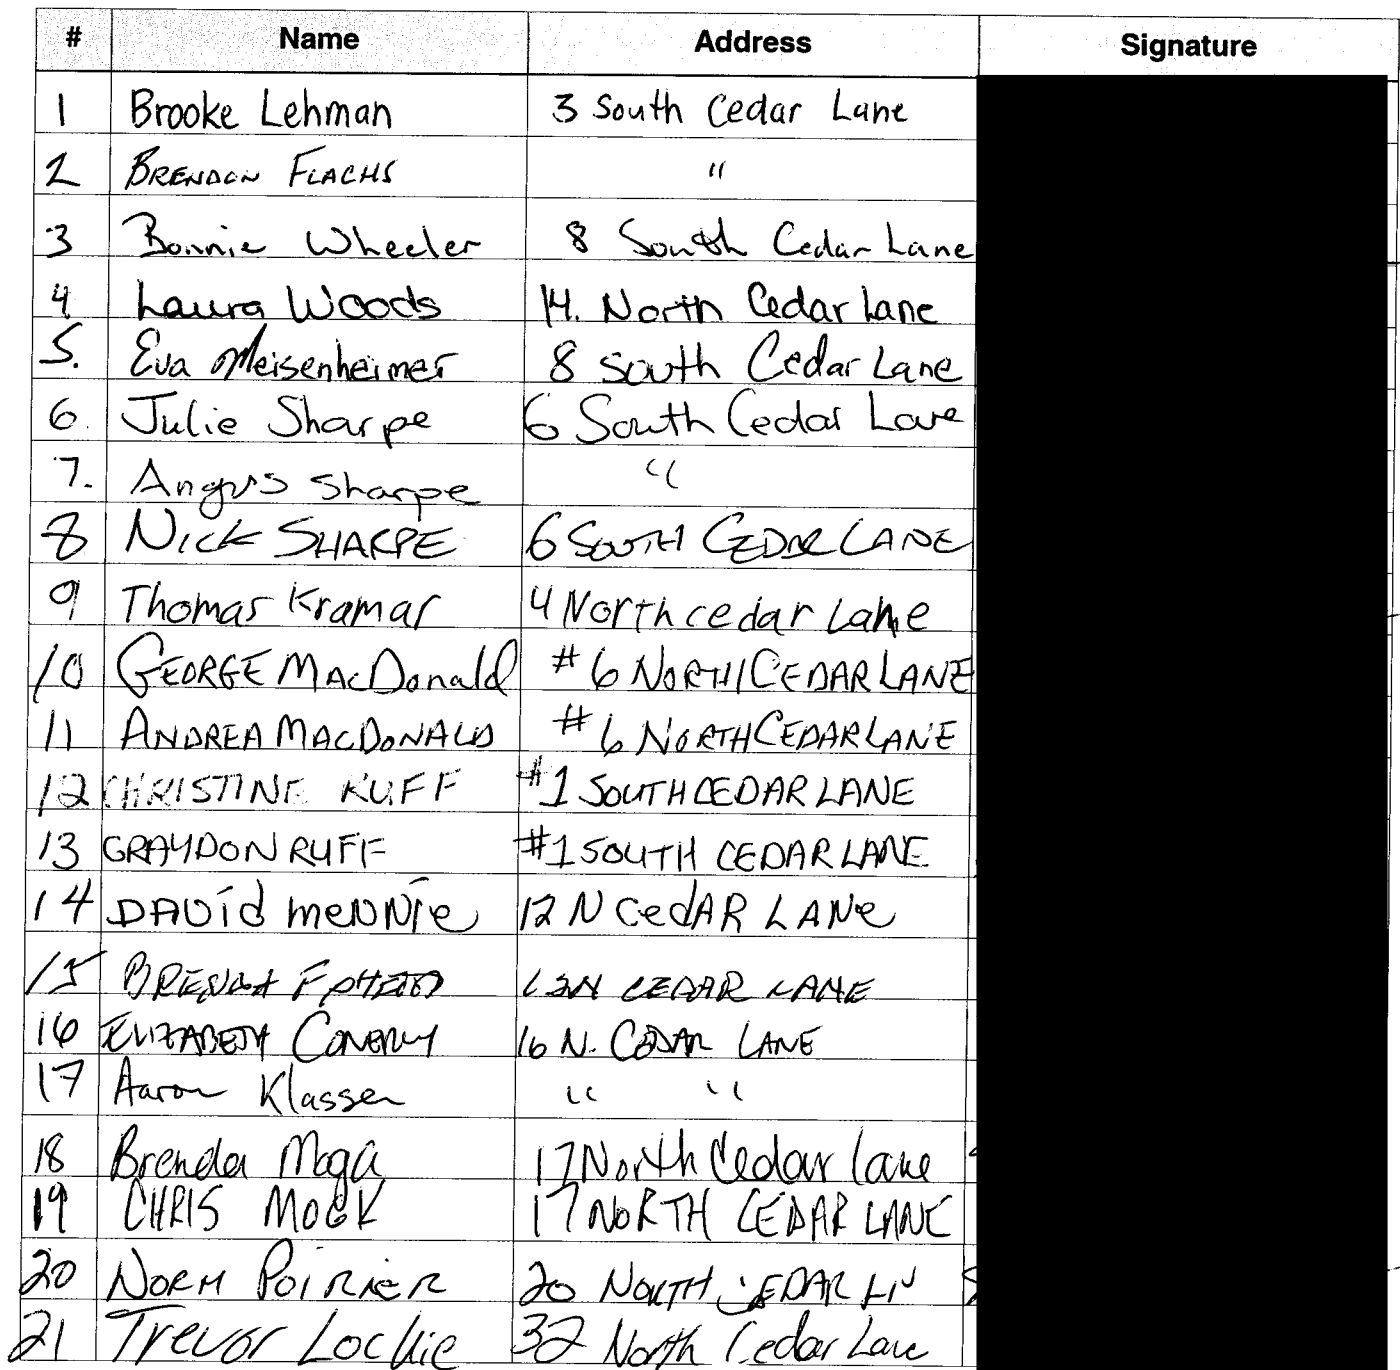 # Name Address Signature
1 Brooke Lehman 3 South Cedar Lane
2 BRENDON FLACHS "
3 Bonnie Wheeler 8 South Cedar Lane
4. Laura Woods 14. North Cedar Lane
5. Eva Meisenheimer 8 South Cedar Lane
6. Julie Sharpe 6 South Cedar Lane
7. Angus Sharpe "
8 NICK SHARPE 6 SOUTH CEDAR LANE
9 Thomas Kramar 4 North cedar Lane
10 GEORGE MACDonald # 6 NORTH CEDAR LANE
11 ANDREA MACDONALD # 6 NORTH CEDAR LANE
12 CHRISTINE RUFF #1 SOUTH CEDAR LANE
13 GRAYDON RUFF #1 SOUTH CEDAR LANE
14 DAVid meNNie 12 N CedAR LANe
15 BRENDA CEDAR LANE
16 ELIZABETH CONERLY 16 N. CEDAR LANE
17 Aaron Klassen " "
18 Brenda 17 North Cedar Lane
19 CHRIS 17 NORTH CEDAR LANE
20 NORM POIRIER 20 NORTH CEDAR LN
21 Trevor Lockie 32 North Cedar Lane